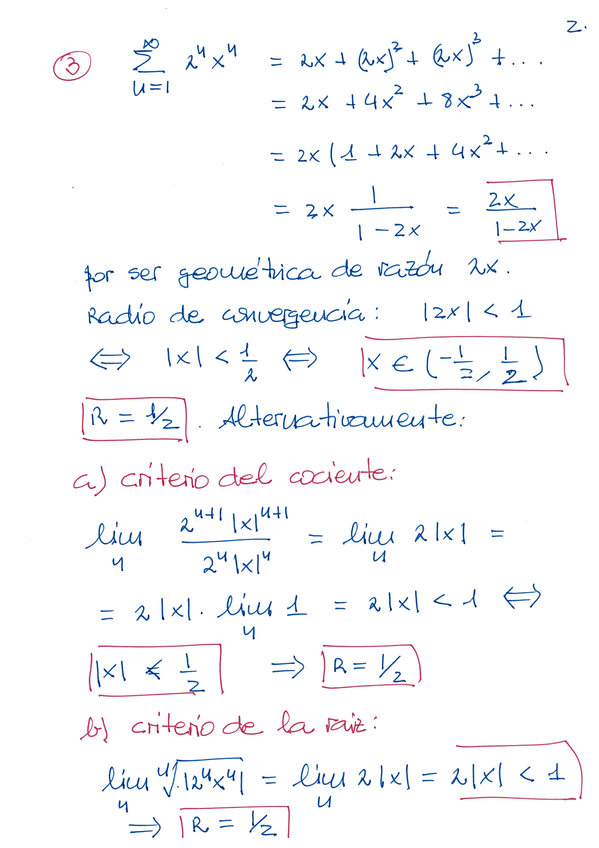 2.
③ ∑_{n=1}^{∞} 2ⁿxⁿ = 2x + (2x)² + (2x)³ + ...
= 2x + 4x² + 8x³ + ...
= 2x (1 + 2x + 4x² + ...
= 2x \frac{1}{1-2x} = \frac{2x}{1-2x}
por ser geométrica de razón 2x.
Radio de convergencia: |2x| < 1
⟺ |x| < \frac{1}{2} ⟺ x ∈ (-\frac{1}{2}, \frac{1}{2})
R = 1/2. Alternativamente:
a) criterio del cociente:
lim_n \frac{2^{n+1}|x|^{n+1}}{2ⁿ|x|ⁿ} = lim_n 2|x| =
= 2|x|. lim_n 1 = 2|x| < 1 ⟺
|x| < \frac{1}{2} ⟹ R = 1/2
b) criterio de la raiz:
lim_n ⁿ√|2ⁿxⁿ| = lim_n 2|x| = 2|x| < 1
⟹ R = 1/2